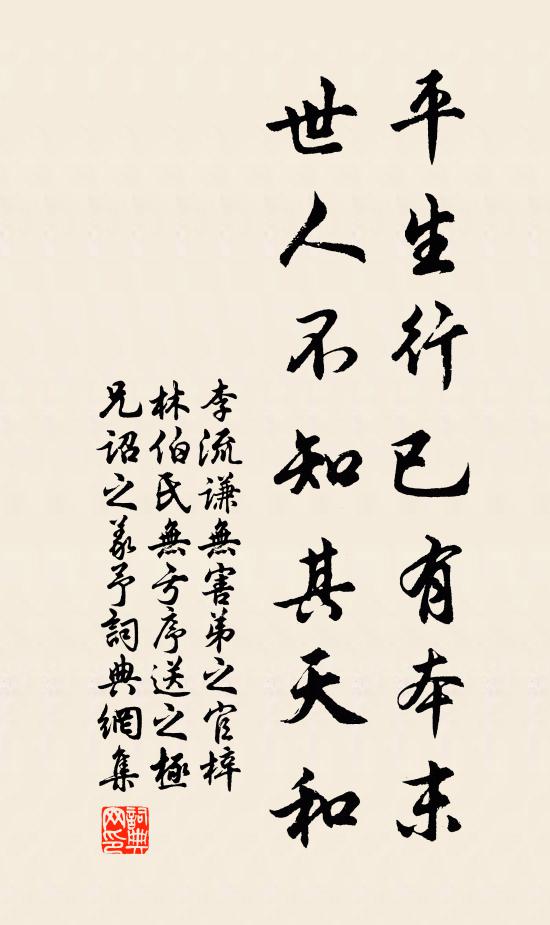 平生行已有本末
世人不知其天和
李流謙無害弟之官梓
林伯氏無亏序送之極
兄詔之義予詞典網集
詞典網印